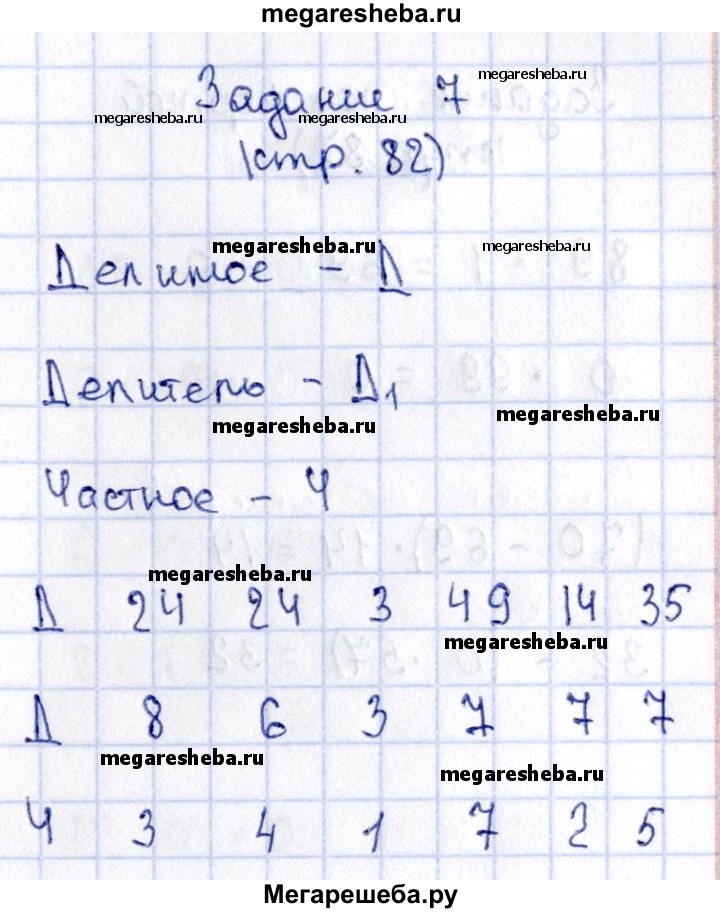 megaresheba.ru
megaresheba.ru
Задание 7
megaresheba.ru megaresheba.ru
(стр. 82)
megaresheba.ru megaresheba.ru
Делимое - Д
Делитель - Д1
megaresheba.ru megaresheba.ru
Частное - Ч
megaresheba.ru
Д 24 24 3 49 14 35
megaresheba.ru
Д 8 6 3 7 7 7
megaresheba.ru megaresheba.ru
Ч 3 4 1 7 2 5
Мегарешеба.ру